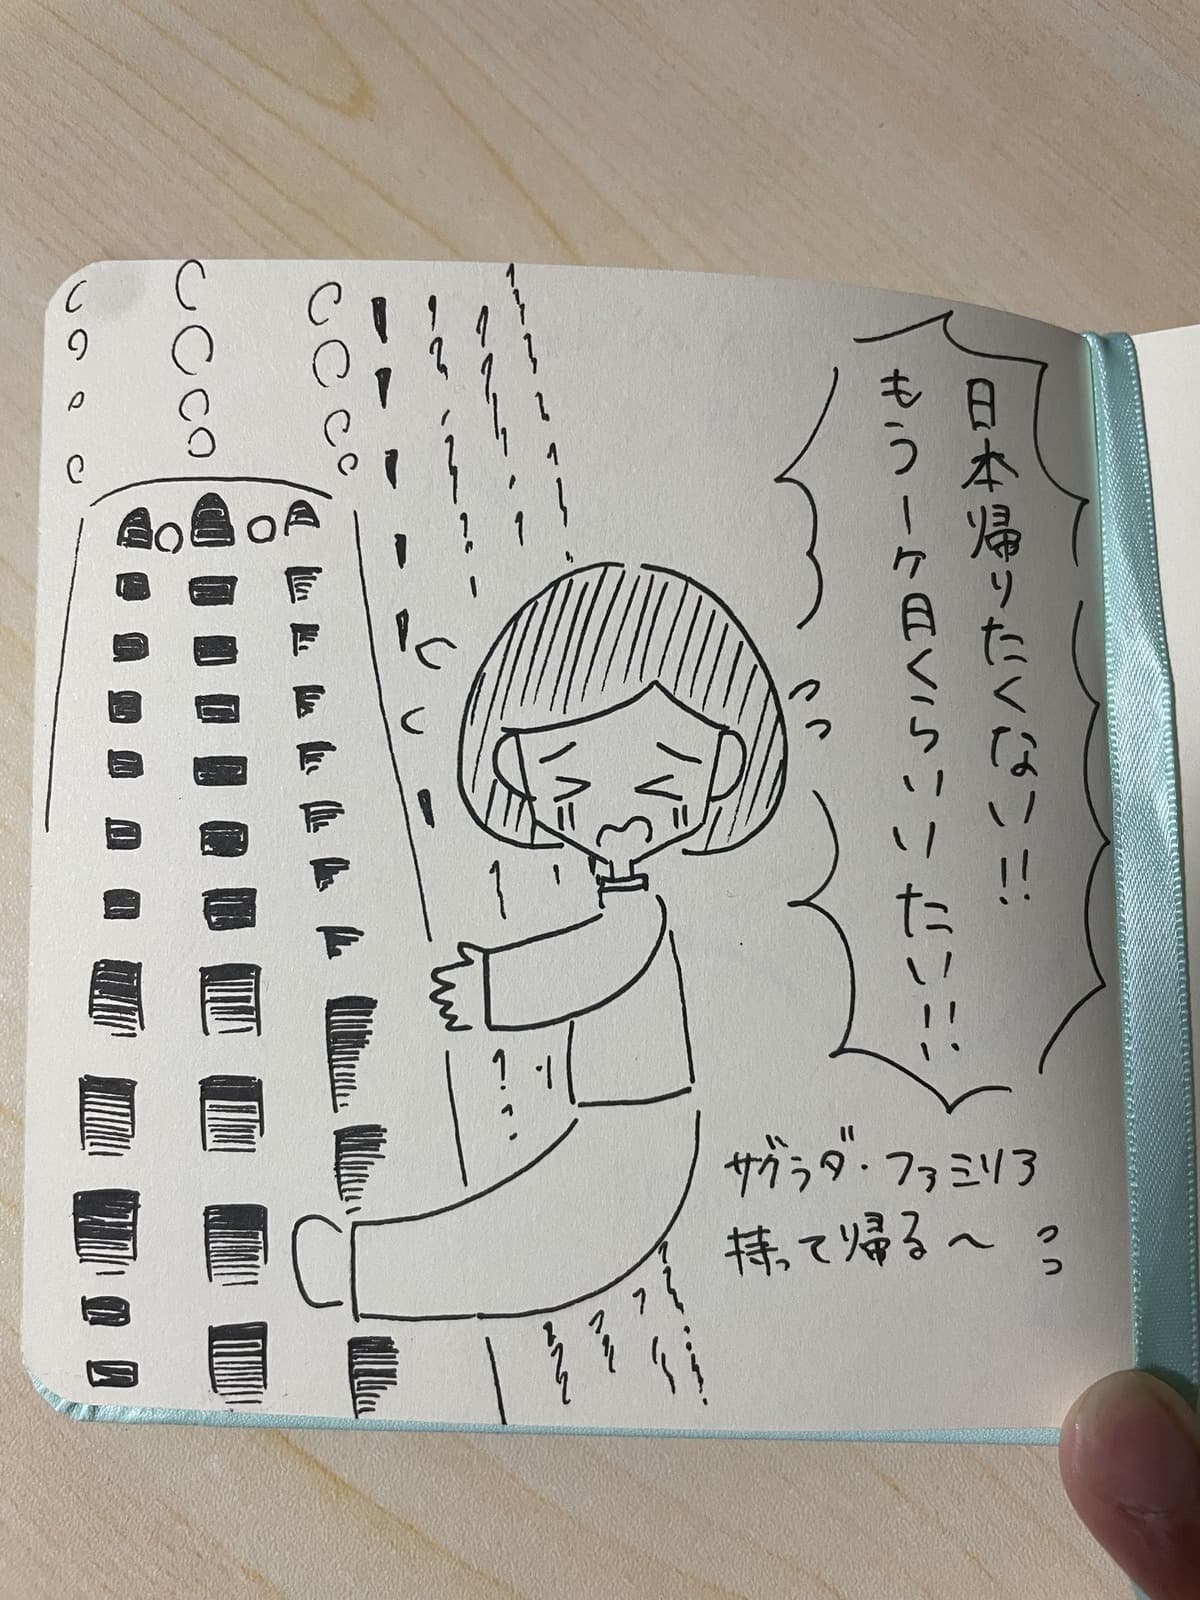 日本帰りたくない!!
もう一ヶ月くらいいたい!!
サグラダ・ファミリア
持って帰る〜